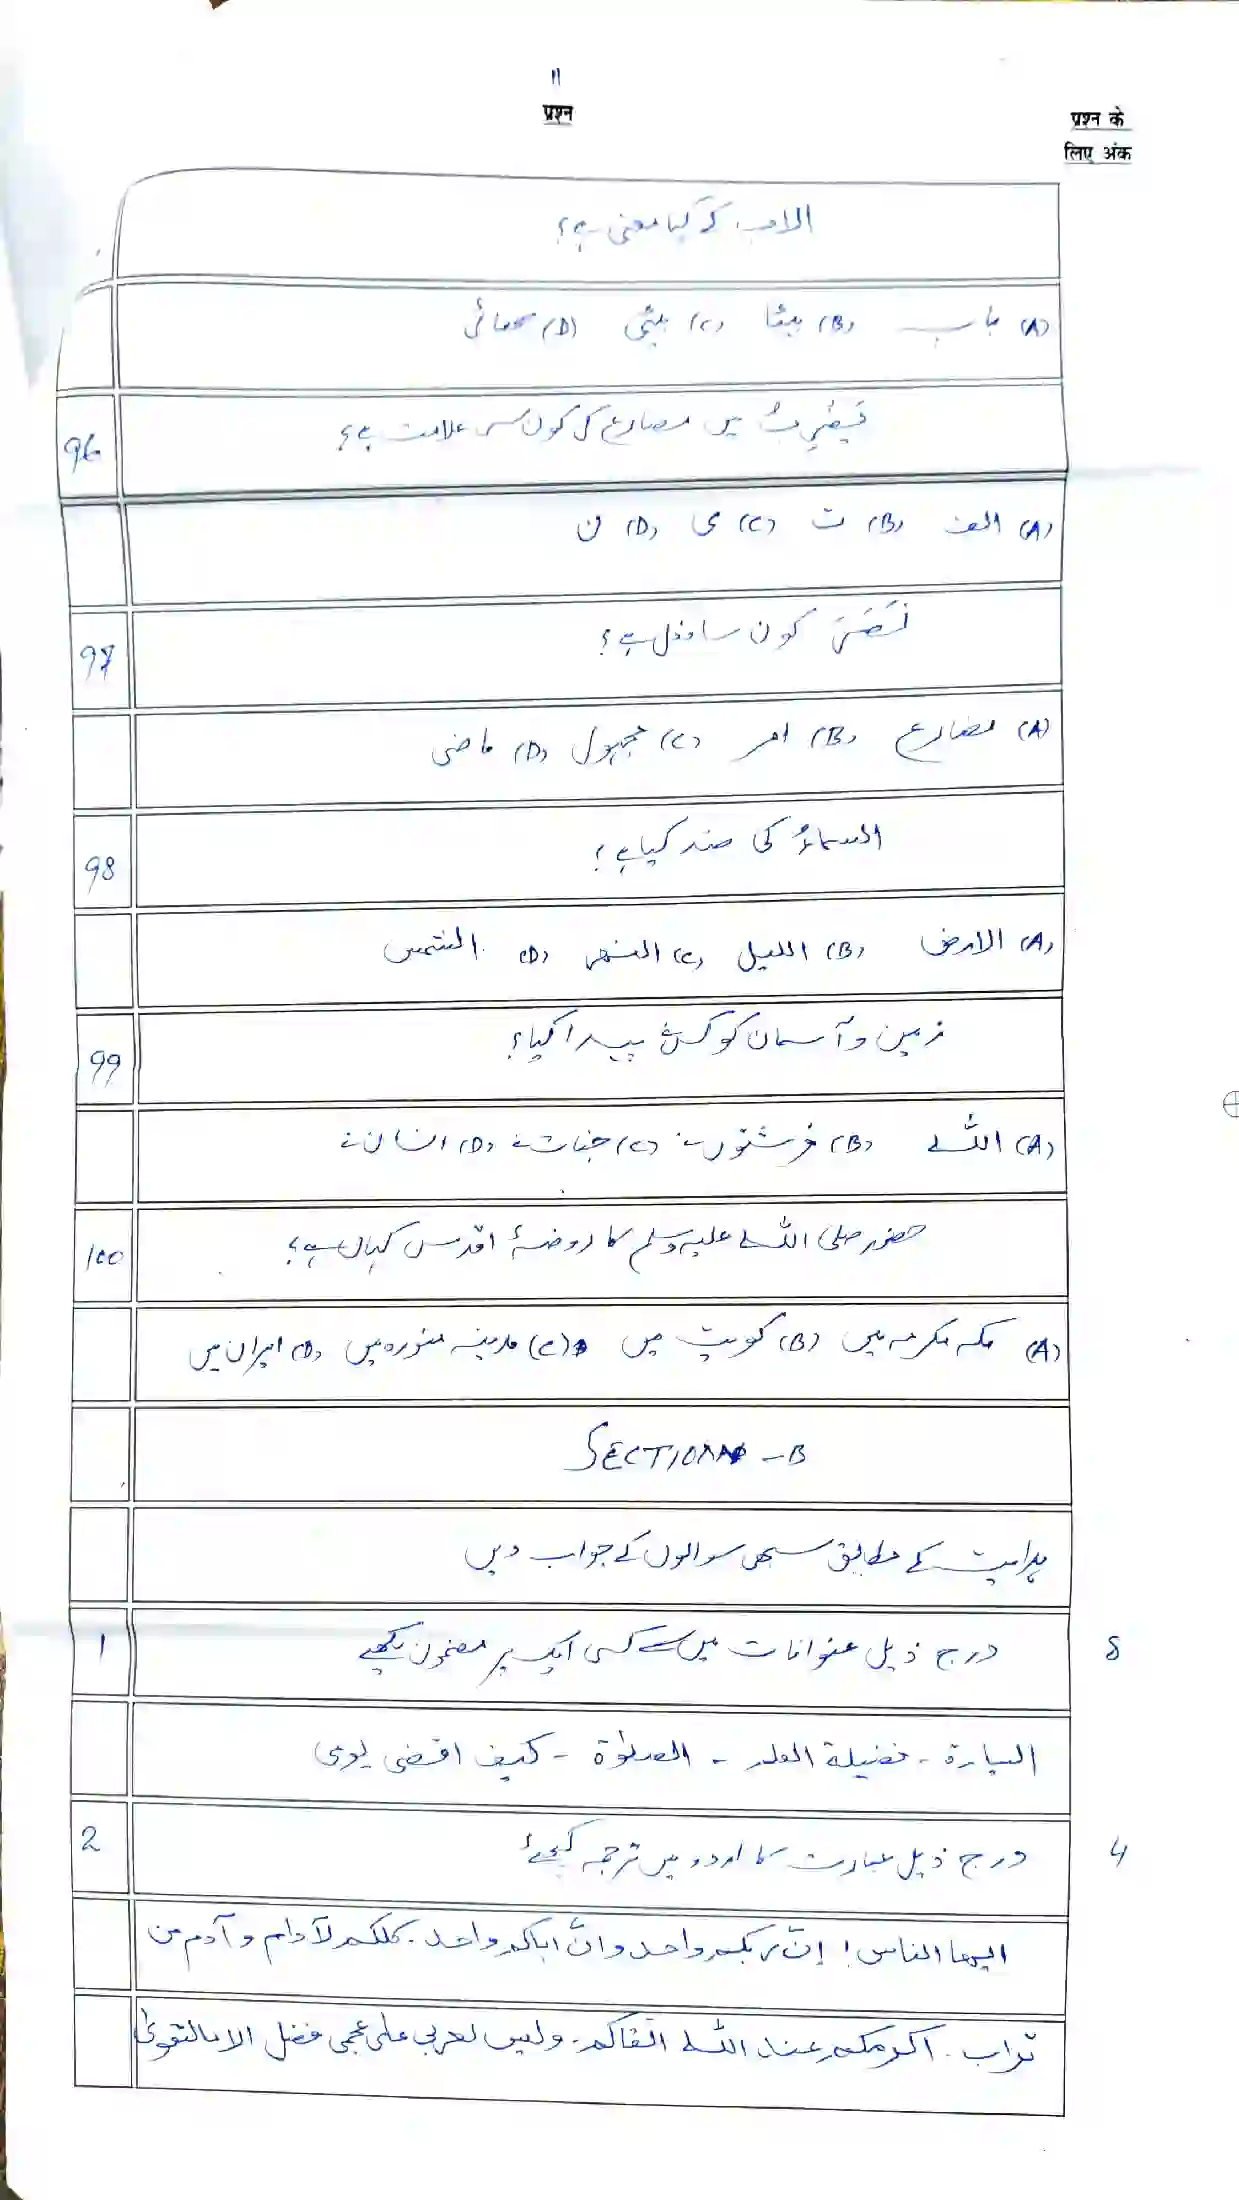 11
प्रश्न
प्रश्न के
लिए अंक
الاب کے کیا معنی ہے؟
(A) باپ (B) بیٹا (C) بیٹی (D) بھائی
96 یَضْرِبُ میں مضارع کی کون سی علامت ہے؟
(A) الف (B) ت (C) ی (D) ن
97 نَصَرَ کون سا فعل ہے؟
(A) مضارع (B) امر (C) مجہول (D) ماضی
98 السماءُ کی ضد کیا ہے؟
(A) الارض (B) اللیل (C) النھر (D) الشمس
99 زمین و آسمان کو کس نے پیدا کیا؟
(A) اللہ نے (B) فرشتوں نے (C) جنات نے (D) انسان نے
100 حضور صلی اللہ علیہ وسلم کا روضۂ اقدس کہاں ہے؟
(A) مکہ مکرمہ میں (B) کویت میں (C) مدینہ منورہ میں (D) ایران میں
SECTION - B
ہدایت کے مطابق سبھی سوالوں کے جواب دیں
1 درج ذیل عنوانات میں سے کسی ایک پر مضمون لکھیے 8
السیارۃ - فضیلة العلم - الصلوٰۃ - کیف اقضی یومی
2 درج ذیل عبارت کا اردو میں ترجمہ کیجئے 4
ایھا الناس! إنّ ربکم واحد وانّ اباکم واحد۔ کلکم لآدام و آدم من
تراب۔ اکرمکم عند اللہ اتقاکم۔ ولیس لعربی علی عجمی فضل الا بالتقویٰ